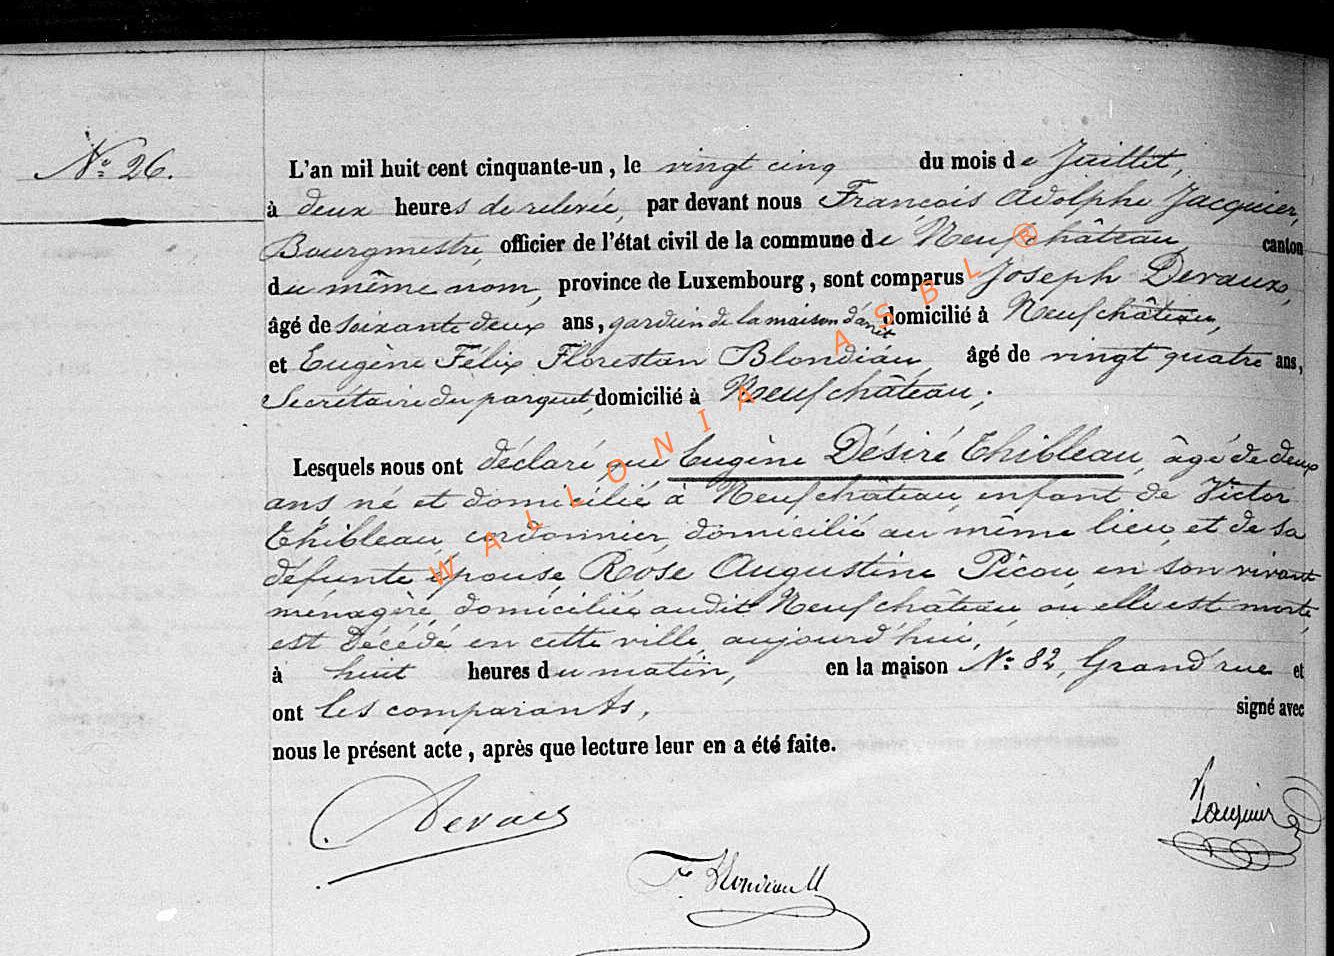 N° 26.
L'an mil huit cent cinquante-un, le vingt cinq du mois de Juillet,
à deux heures de relevée, par devant nous François Adolphe Jacquier,
Bourgmestre, officier de l'état civil de la commune de Neufchâteau, canton
du même nom, province de Luxembourg, sont comparus Joseph Devaux,
âgé de soixante deux ans, gardien de la maison d'arrêt domicilié à Neufchâteau,
et Eugène Félix Florestan Blondiau, âgé de vingt quatre ans,
Secrétaire du parquet, domicilié à Neufchâteau;
Lesquels nous ont déclaré que Eugène Désiré Thibleau, âgé de deux
ans, né et domicilié à Neufchâteau, enfant de Victor
Thibleau, cordonnier, domicilié au même lieu, et de sa
défunte épouse Rose Augustine Picou, en son vivant
ménagère, domiciliée audit Neufchâteau, où elle est morte,
est décédé en cette ville, aujourd'hui,
à huit heures du matin, en la maison N° 82, Grand'rue et
ont les comparants, signé avec
nous le présent acte, après que lecture leur en a été faite.
Devaux
Jacquier
F. Blondiau
WALLONIA ASBL ®